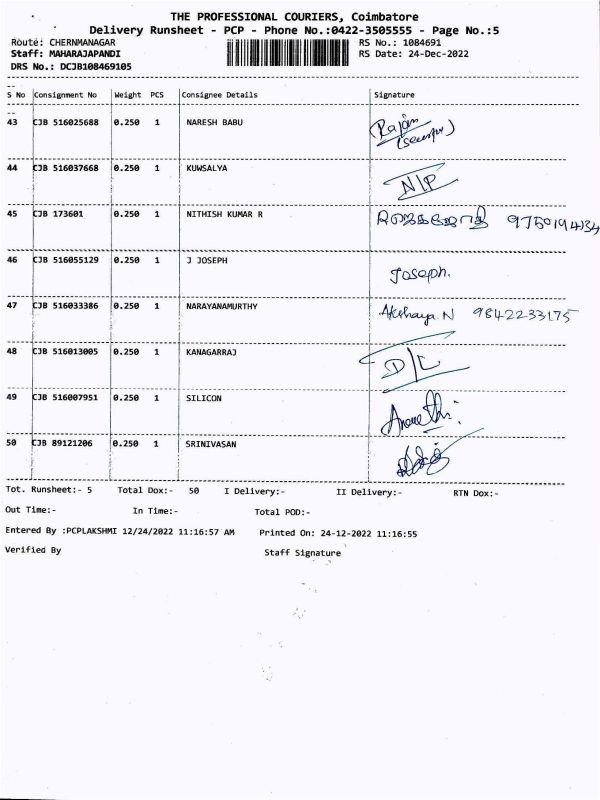 THE PROFESSIONAL COURIERS, Coimbatore
Delivery Runsheet - PCP - Phone No.:0422-3505555 - Page No.:5
Route: CHERNMANAGAR RS No.: 1084691
Staff: MAHARAJAPANDI RS Date: 24-Dec-2022
DRS No.: DCJB108469105
S No Consignment No Weight PCS Consignee Details Signature
43 CJB 516025688 0.250 1 NARESH BABU Rajan
44 CJB 516037668 0.250 1 KUWSALYA N/P
45 CJB 173601 0.250 1 NITHISH KUMAR R
46 CJB 516055129 0.250 1 J JOSEPH Joseph.
47 CJB 516033386 0.250 1 NARAYANAMURTHY Akshaya N 9842233175
48 CJB 516013005 0.250 1 KANAGARRAJ D/L
49 CJB 516007951 0.250 1 SILICON
50 CJB 89121206 0.250 1 SRINIVASAN
Tot. Runsheet:- 5 Total Dox:- 50 I Delivery:- II Delivery:- RTN Dox:-
Out Time:- In Time:- Total POD:-
Entered By :PCPLAKSHMI 12/24/2022 11:16:57 AM Printed On: 24-12-2022 11:16:55
Verified By Staff Signature